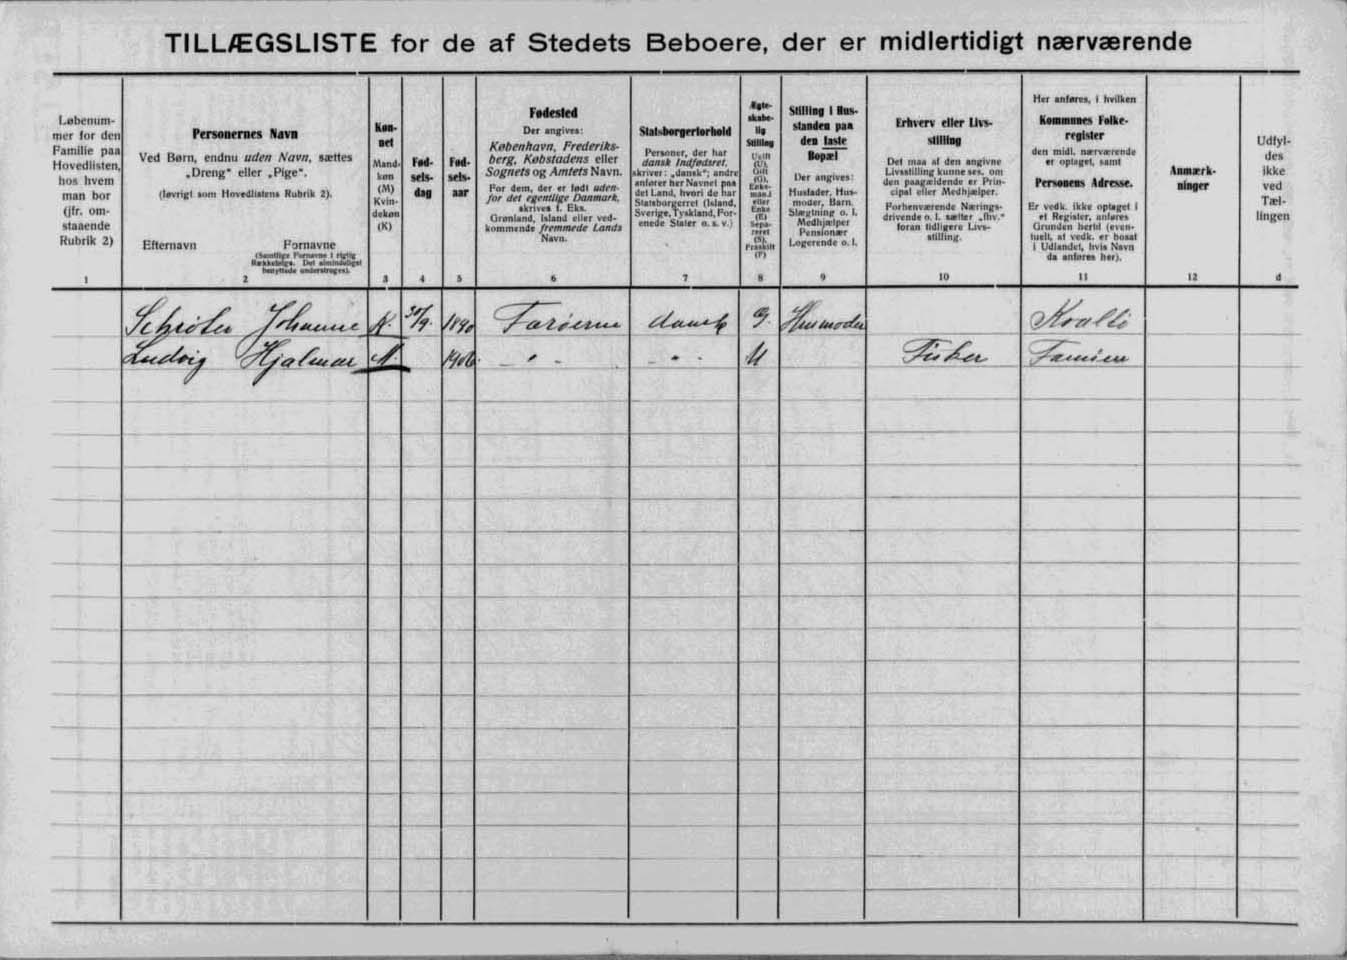 TILLÆGSLISTE for de af Stedets Beboere, der er midlertidigt nærværende
Løbenum-
mer for den
Familie paa
Hovedlisten,
hos hvem
man bor
(jfr. om-
staaende
Rubrik 2)
1
Personernes Navn
Ved Børn, endnu uden Navn, sættes
„Dreng“ eller „Pige“.
(Iøvrigt som Hovedlistens Rubrik 2).
Efternavn Fornavne
(Samtlige Fornavne i rigtig
Rækkefølge. Det almindeligst
benyttede understreges).
2
Køn-
net
Mand-
køn
(M)
Kvin-
dekøn
(K)
3
Fød-
sels-
dag
4
Fød-
sels-
aar
5
Fødested
Der angives:
København, Frederiks-
berg, Købstadens eller
Sognets og Amtets Navn.
For dem, der er født uden-
for det egentlige Danmark,
skrives f. Eks.
Grønland, Island eller ved-
kommende fremmede Lands
Navn.
6
Statsborgerforhold
Personer, der har
dansk Indfødsret,
skriver: „dansk“; andre
anfører her Navnet paa
det Land, hvori de har
Statsborgerret (Island,
Sverige, Tyskland, For-
enede Stater o. s. v.)
7
Ægte-
skabe-
lig
Stilling
Ugift
(U),
Gift
(G),
Enke-
mand
eller
Enke
(E)
Sepa-
reret
(S),
Fraskilt
(F)
8
Stilling i Hus-
standen paa
den faste
Bopæl
Der angives:
Husfader, Hus-
moder, Barn,
Slægtning o. l.
Medhjælper
Pensionær
Logerende o. l.
9
Erhverv eller Livs-
stilling
Det maa af den angivne
Livsstilling kunne ses, om
den paagældende er Prin-
cipal eller Medhjælper.
Forhenværende Nærings-
drivende o. l. sætter „fhv.“
foran tidligere Livs-
stilling.
10
Her anføres, i hvilken
Kommunes Folke-
register
den midl. nærværende
er optaget, samt
Personens Adresse.
Er vedk. ikke optaget i
et Register, anføres
Grunden hertil (even-
tuelt, at vedk. er bosat
i Udlandet, hvis Navn
da anføres her).
11
Anmærk-
ninger
12
Udfyl-
des
ikke
ved
Tæl-
lingen
d
Schröter Johanne K. 30/9. 1890 Færöerne dansk G. Husmoder Kvalbö
Ludvig Hjalmar M. 1906 — „ — — „ — U Fisker